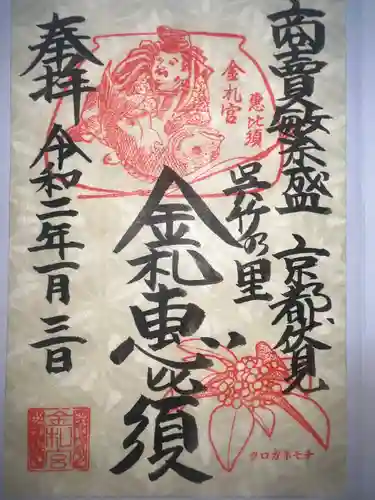 商賣繁盛
京都伏見
呉竹の里
金札恵比須
奉拝
令和二年一月三日
金札宮
恵比須
金札宮
クロガネモチ